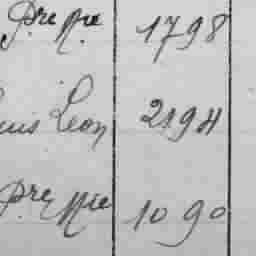 Pre Nie 1798
uis Leon 2194
Pre Nie 1090